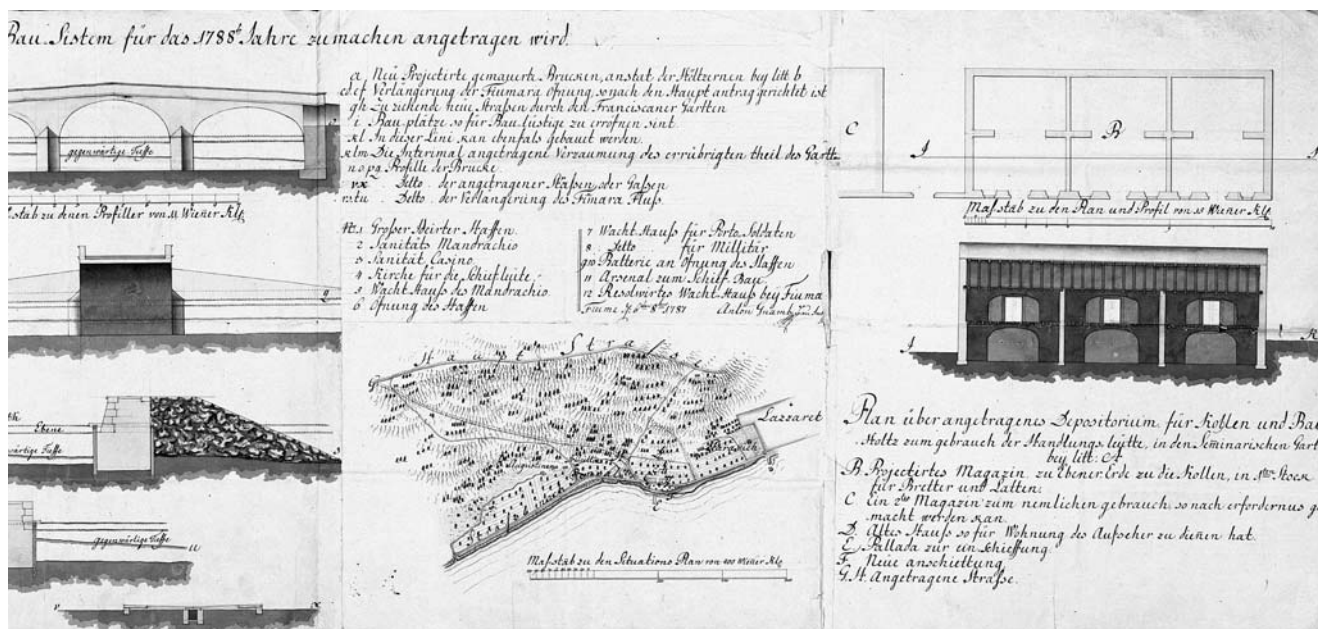 Bau-Sistem für das 1788te Jahre zu machen angetragen wird.
gegenwärtige Tieffe
stab zu denen Profiller von 11 Wiener Klf.
Ebene
wärtige Tieffe
gegenwärtige Tieffe
a Neu Projectirte gemauerte Brucken, anstat der Höltzernen bey litt b
cdef Verlängirung der Fiumara Öfnung, so nach den Haupt antrag gerichtet ist
gh Zu ziehende neüe Straßen durch den Franciscaner Gartten
i Bau plätze so für Bau lüstige zu erröfnen sint
kl In dieser Lini kan ebenfals gebauet werden.
klm Die Interimal angetragene Verzaumung des errübrigten theil des Gartt
nopq Profille der Brucke
vx Detto der angetragener Straßen oder Gaßen
rstu Detto der Verlängirung des Fiumara Fluß.
No. 1 Großer Haffen.
2 Sanitäts Mandrachio
3 Sanität Casino
4 Kirche für die Schiefleüte
5 Wacht Hauß des Mandrachio.
6 Öfnung des Haffen
7 Wacht Hauß für Porto Soldaten
8 Detto für Millitär
9 10 Batterie an Öfnung des Haffen
11 Arsenal zum Schieff Bau
12 Resolwirtes Wacht Hauß bey Fiuma
Fiume 1787 Anton Gnamb
Haupt Stra
G
Lazzaret
Maßstab zu den Situations Plan von 400 Wiener Klf.
C
B
Maßstab zu den Plan und Profil von 10 Wiener Klf.
Plan über angetragenes Depositorium, für Kollen und Bau
Holtz zum gebrauch der Handlungs leütte, in den Seminarischen Gart
bey litt: C
B. Projectirtes Magazin zu Ebener Erde zu die Kollen, in 1ten Stock
für Bretter und Latten.
C Ein 2tes Magazin zum nemlichen gebrauch so nach erfordernus ge
macht werden kan.
D. Altes Hauß so für Wohnung des Aufseher zu dienen hat.
E. Pallada zur ein Schieffung
F. Neüe anschiettung
G.H. Angetragene Straße.